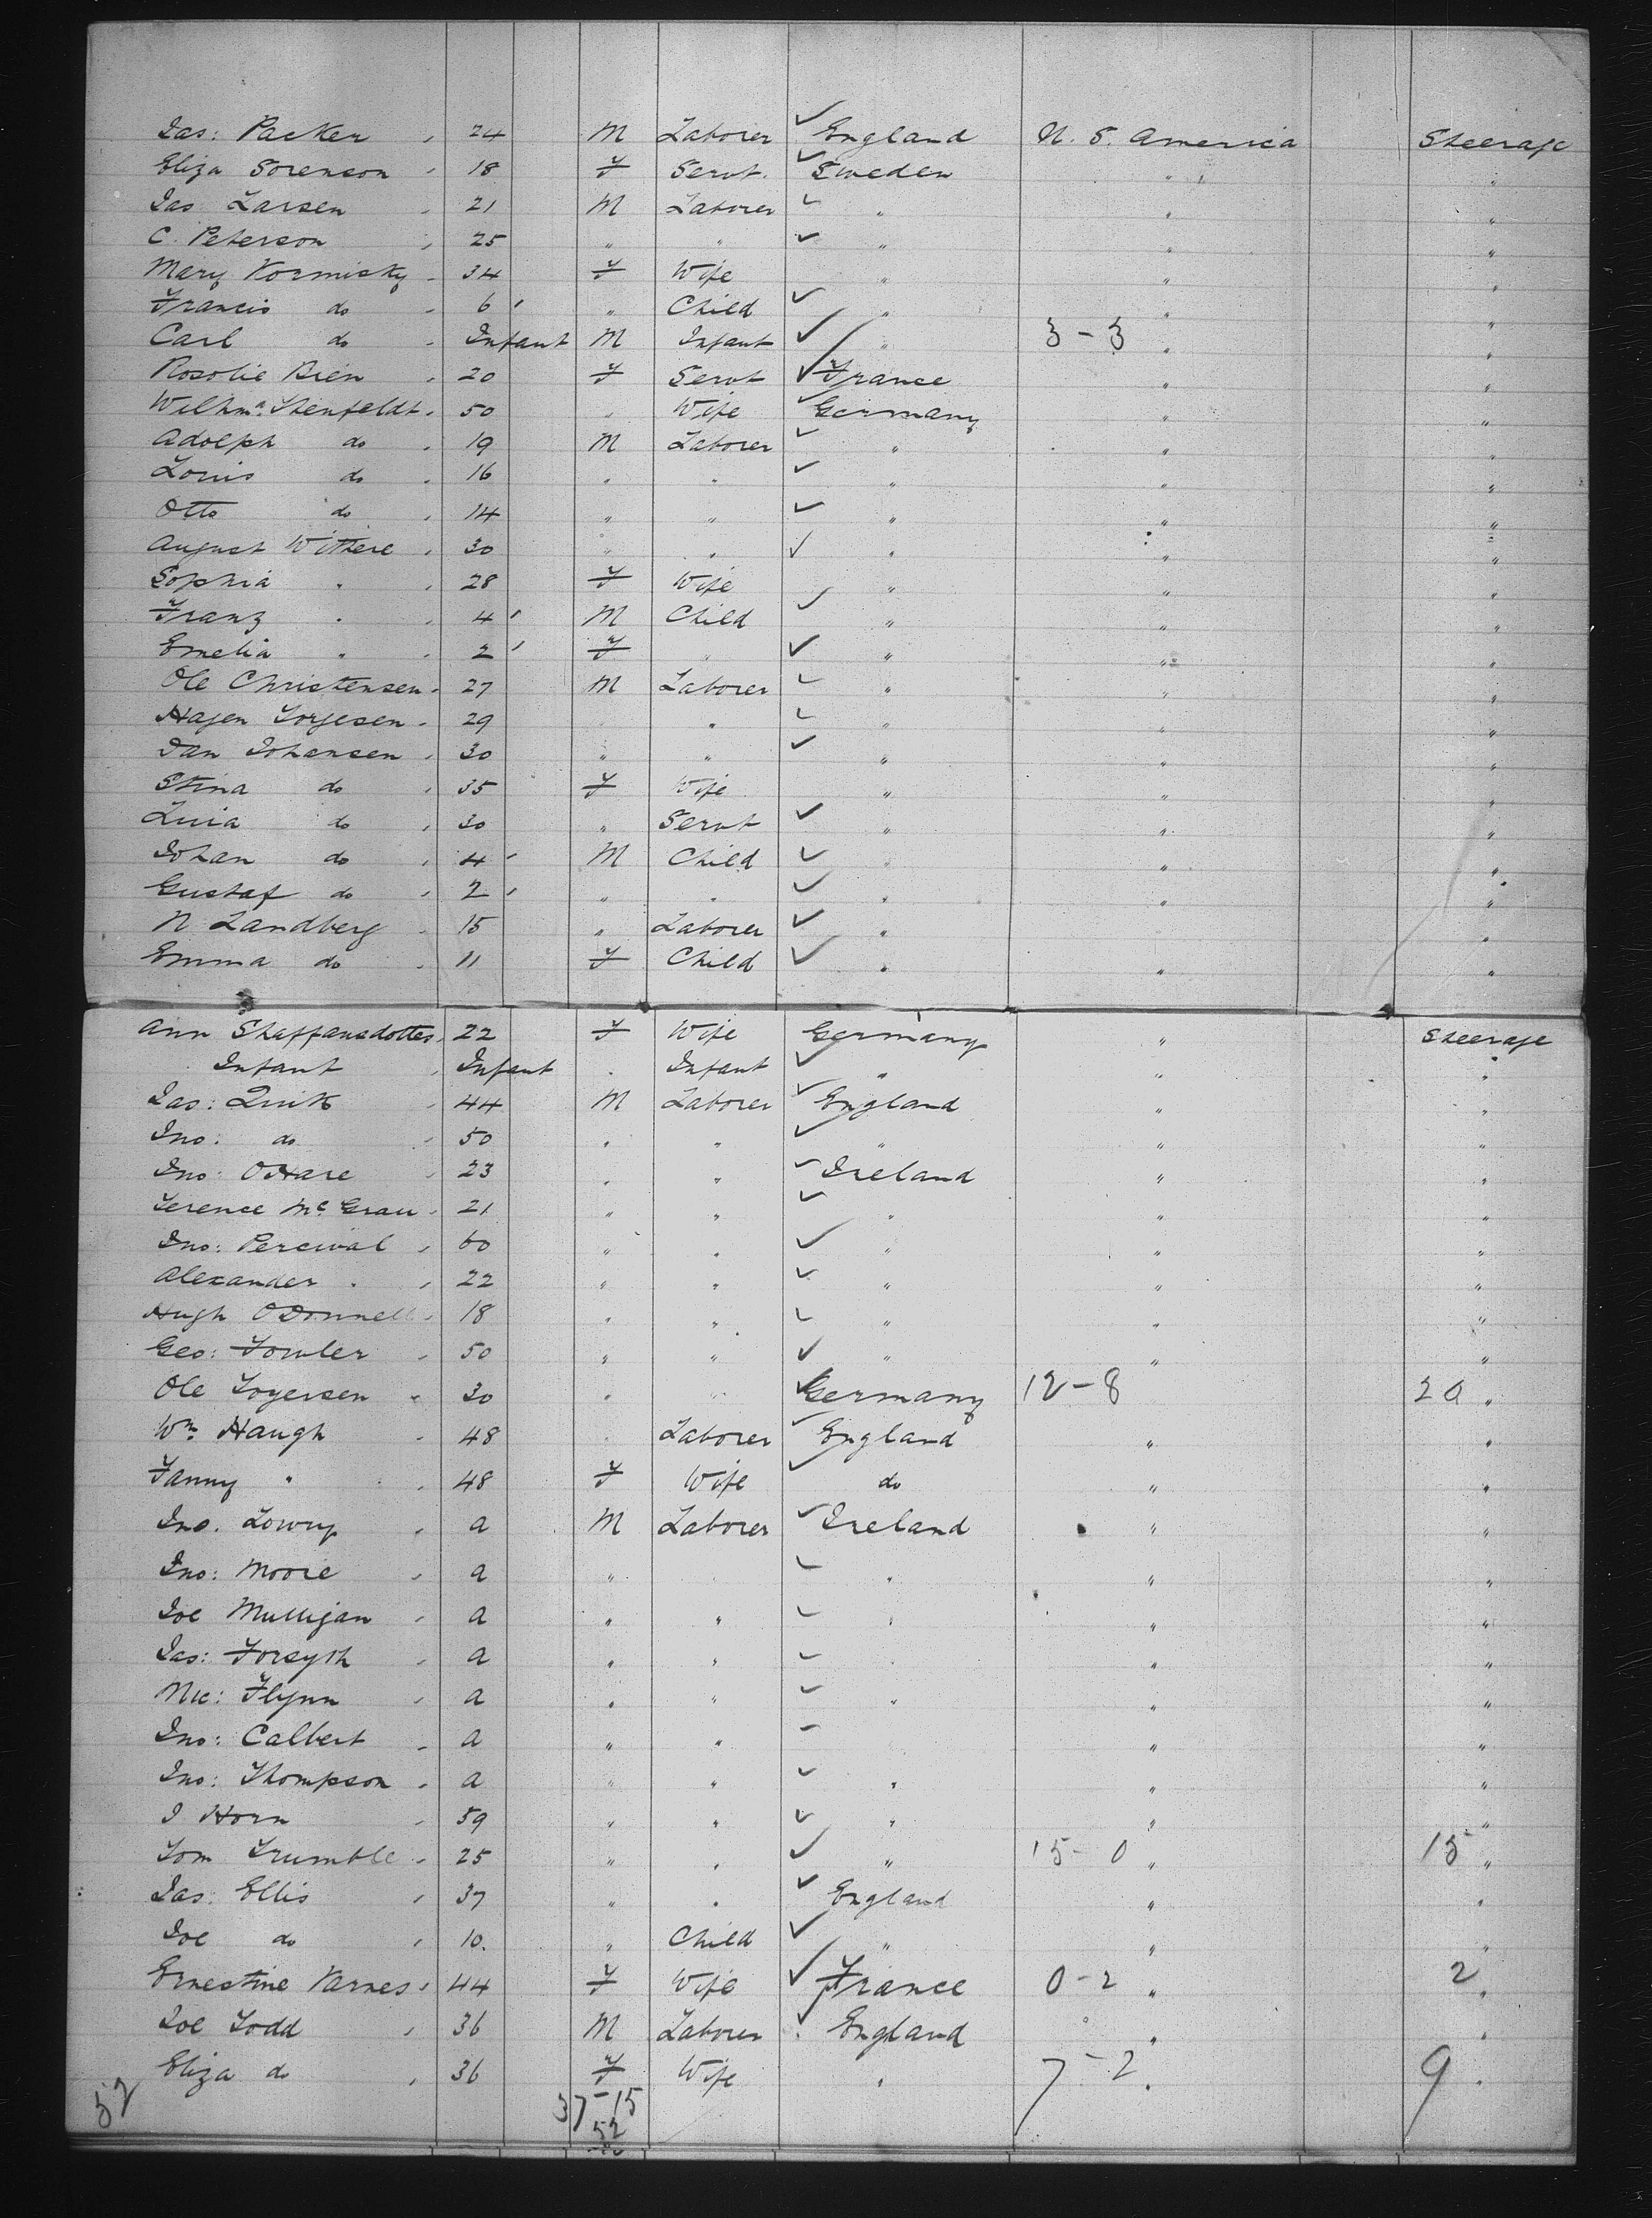 Jas: Packer 24 M Laborer England U. S. America Steerage
Eliza Sorenson 18 F Servt. Sweden " "
Jas Larsen 21 M Laborer " " "
C. Peterson 25 " " " " "
Mary Kormisky 34 F Wife " " "
Francis do 6 " Child " " "
Carl do Infant M Infant " 3-3 " "
Rosolie Bien 20 F Servt France " "
Wilhma. Stenfeldt 50 " Wife Germany " "
Adolph do 19 M Laborer " " "
Louis do 16 " " " " "
Otto do 14 " " " " "
August Withere 30 " " " " "
Sophia " 28 F Wife " " "
Franz " 4 M Child " " "
Emelia " 2 F " " " "
Ole Christensen 27 M Laborer " " "
Hagen Torjesen 29 " " " "
Dan Johansen 30 " " " " "
Stina do 35 F Wife " " "
Luia do 30 " Servt " " "
Johan do 4 M Child " " "
Gustaf do 2 " " " " "
N Landberg 15 " Laborer " "
Emma do 11 F Child " " "
Ann Staffansdotter 22 F Wife Germany " Steerage
Infant Infant " Infant " " "
Jas: Quik 44 M Laborer England " "
Jno: do 50 " " " " "
Jno: OHare 23 " " Ireland " "
Terence McGrau 21 " " " " "
Jno: Percival 60 " " " " "
Alexander " 22 " " " " "
Hugh ODonnell 18 " " " " "
Geo: Fowler 50 " " " " "
Ole Togersen 30 " " Germany 12-8 20 "
Wm. Haugh 48 " Laborer England " "
Fanny " 48 F Wife do " "
Jno. Lowry a M Laborer Ireland " "
Jno: Moore a " " " "
Joe Mulligan a " " " " "
Jas: Forsyth a " " " " "
Mic: Flynn a " " " " "
Jno: Calbert a " " " "
Jno: Thompson a " " " " "
J Horn 59 " " " " "
Tom Trumble 25 " " " 15-0 " 15 "
Jas: Ellis 37 " " England " "
Joe do 10. " Child " " "
Ernestine Varnes 44 F Wife France 0-2 " 2 "
Joe Todd 36 M Laborer England " "
Eliza do 36 F Wife " 7-2 " 9 "
52 37-15
52